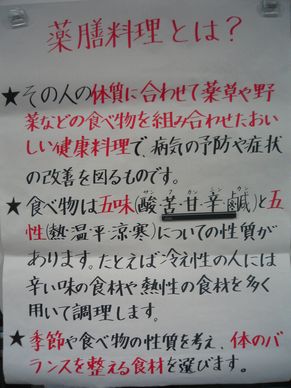 薬膳料理とは？
★その人の体質に合わせて薬草や野
菜などの食べ物を組み合わせたおい
しい健康料理で、病気の予防や症状
の改善を図るものです。
★食べ物は五味(酸苦甘辛鹹)と五
性(熱・温・平・涼・寒)についての性質が
あります。たとえば冷え性の人には
辛い味の食材や熱性の食材を多く
用いて調理します。
★季節や食べ物の性質を考え、体のバ
ランスを整える食材を選びます。